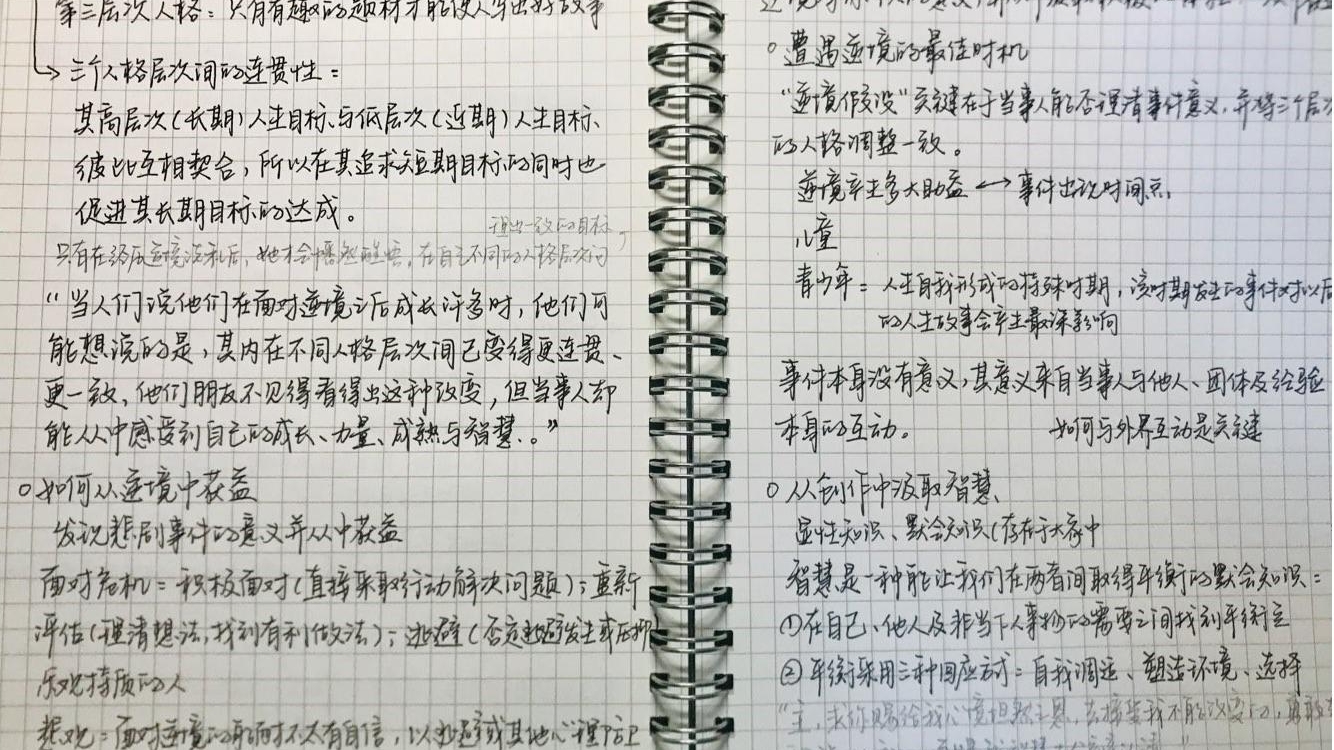 第三层次人格：只有有趣的题材才能使人写出好故事
三个人格层次间的连贯性：
其高层次(长期)人生目标、与低层次(近期)人生目标、
彼此互相契合，所以在其追求短期目标的同时也
促进其长期目标的达成。
理出一致的目标，
只有在经历逆境洗礼后，她才会幡然醒悟，在自己不同的人格层次间
“当人们说他们在面对逆境之后成长许多时，他们可
能想说的是，其内在不同人格层次间已变得更连贯、
更一致、他们朋友不见得看得出这种改变，但当事人却
能从中感受到自己的成长、力量、成熟与智慧。”
如何从逆境中获益
发现悲剧事件的意义并从中获益
面对危机：积极面对(直接采取行动解决问题)；重新
评估(理清想法,找到有利做法)；逃避(否定
乐观特质的人
悲观：面对逆境的 不太有自信，以逃避或其他心理防卫
遭遇逆境的最佳时机
“逆境假设”关键在于当事人能否理清事件意义，并将三个层次
的人格调整一致。
逆境产生多大助益 ←→ 事件出现时间点
儿童
青少年：人生自我形成的特殊时期，该时期发生的事件对以后
的人生故事会产生最深影响
事件本身没有意义，其意义来自当事人与他人、团体及经验
本身的互动。 如何与外界互动是关键
从创作中汲取智慧、
显性知识、默会知识(存在于 中
智慧是一种能让我们在两者间取得平衡的默会知识：
①在自己、他人及非当下人事物的需要之间找到平衡点
②平衡采用三种回应方式：自我调适、塑造环境、选择
“主，求你赐给我心境坦然之恩，去接受我不能改变的，